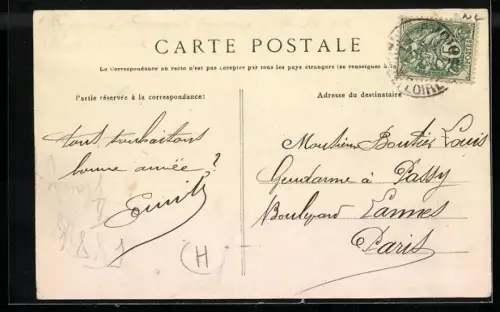 CARTE POSTALE
La Correspondance au recto n'est pas acceptée par tous les pays étrangers (se renseignez à la
Partie réservée à la correspondance:
Adresse du destinataire
souhaitons
bonne année
Emile
H
Monsieur Boutier Louis
Gendarme à Passy
Boulevard Lannes
Paris
LOIRE